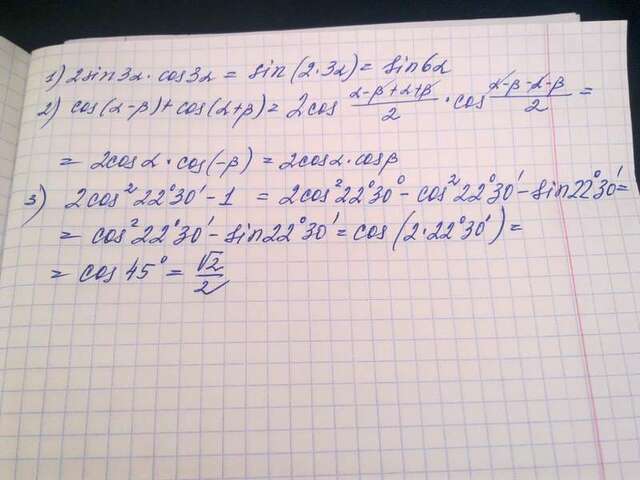 1) 2sin3α · cos3α = sin(2·3α) = sin6α
2) cos(α-β)+cos(α+β) = 2cos (α-β+α+β)/2 · cos (α-β-α-β)/2 =
= 2cosα · cos(-β) = 2cosα · cosβ
3) 2cos²22°30' - 1 = 2cos²22°30° - cos²22°30' - sin22°30' =
= cos²22°30' - sin22°30' = cos(2·22°30') =
= cos45° = √2/2